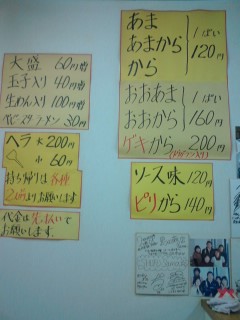 大盛 60円増
玉子入り 40円増
生めん入り 100円増
ベビースターラーメン 30円
ヘラ 大 200円
小 60円
持ち帰りは各種
2コよりお願いします
代金は先払いで
お願いします。
あま
あまから 1ぱい 120円
から
おおあま 1ぱい
おおから 160円
ゲキから 200円
ソース味 120円
ピリから 140円